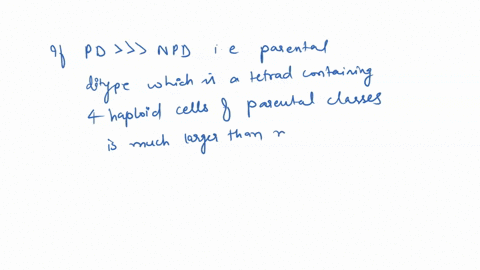 If PD >>> NPD i e parental
ditype which is a tetrad containing
4 haploid cells of parental classes
is much larger than